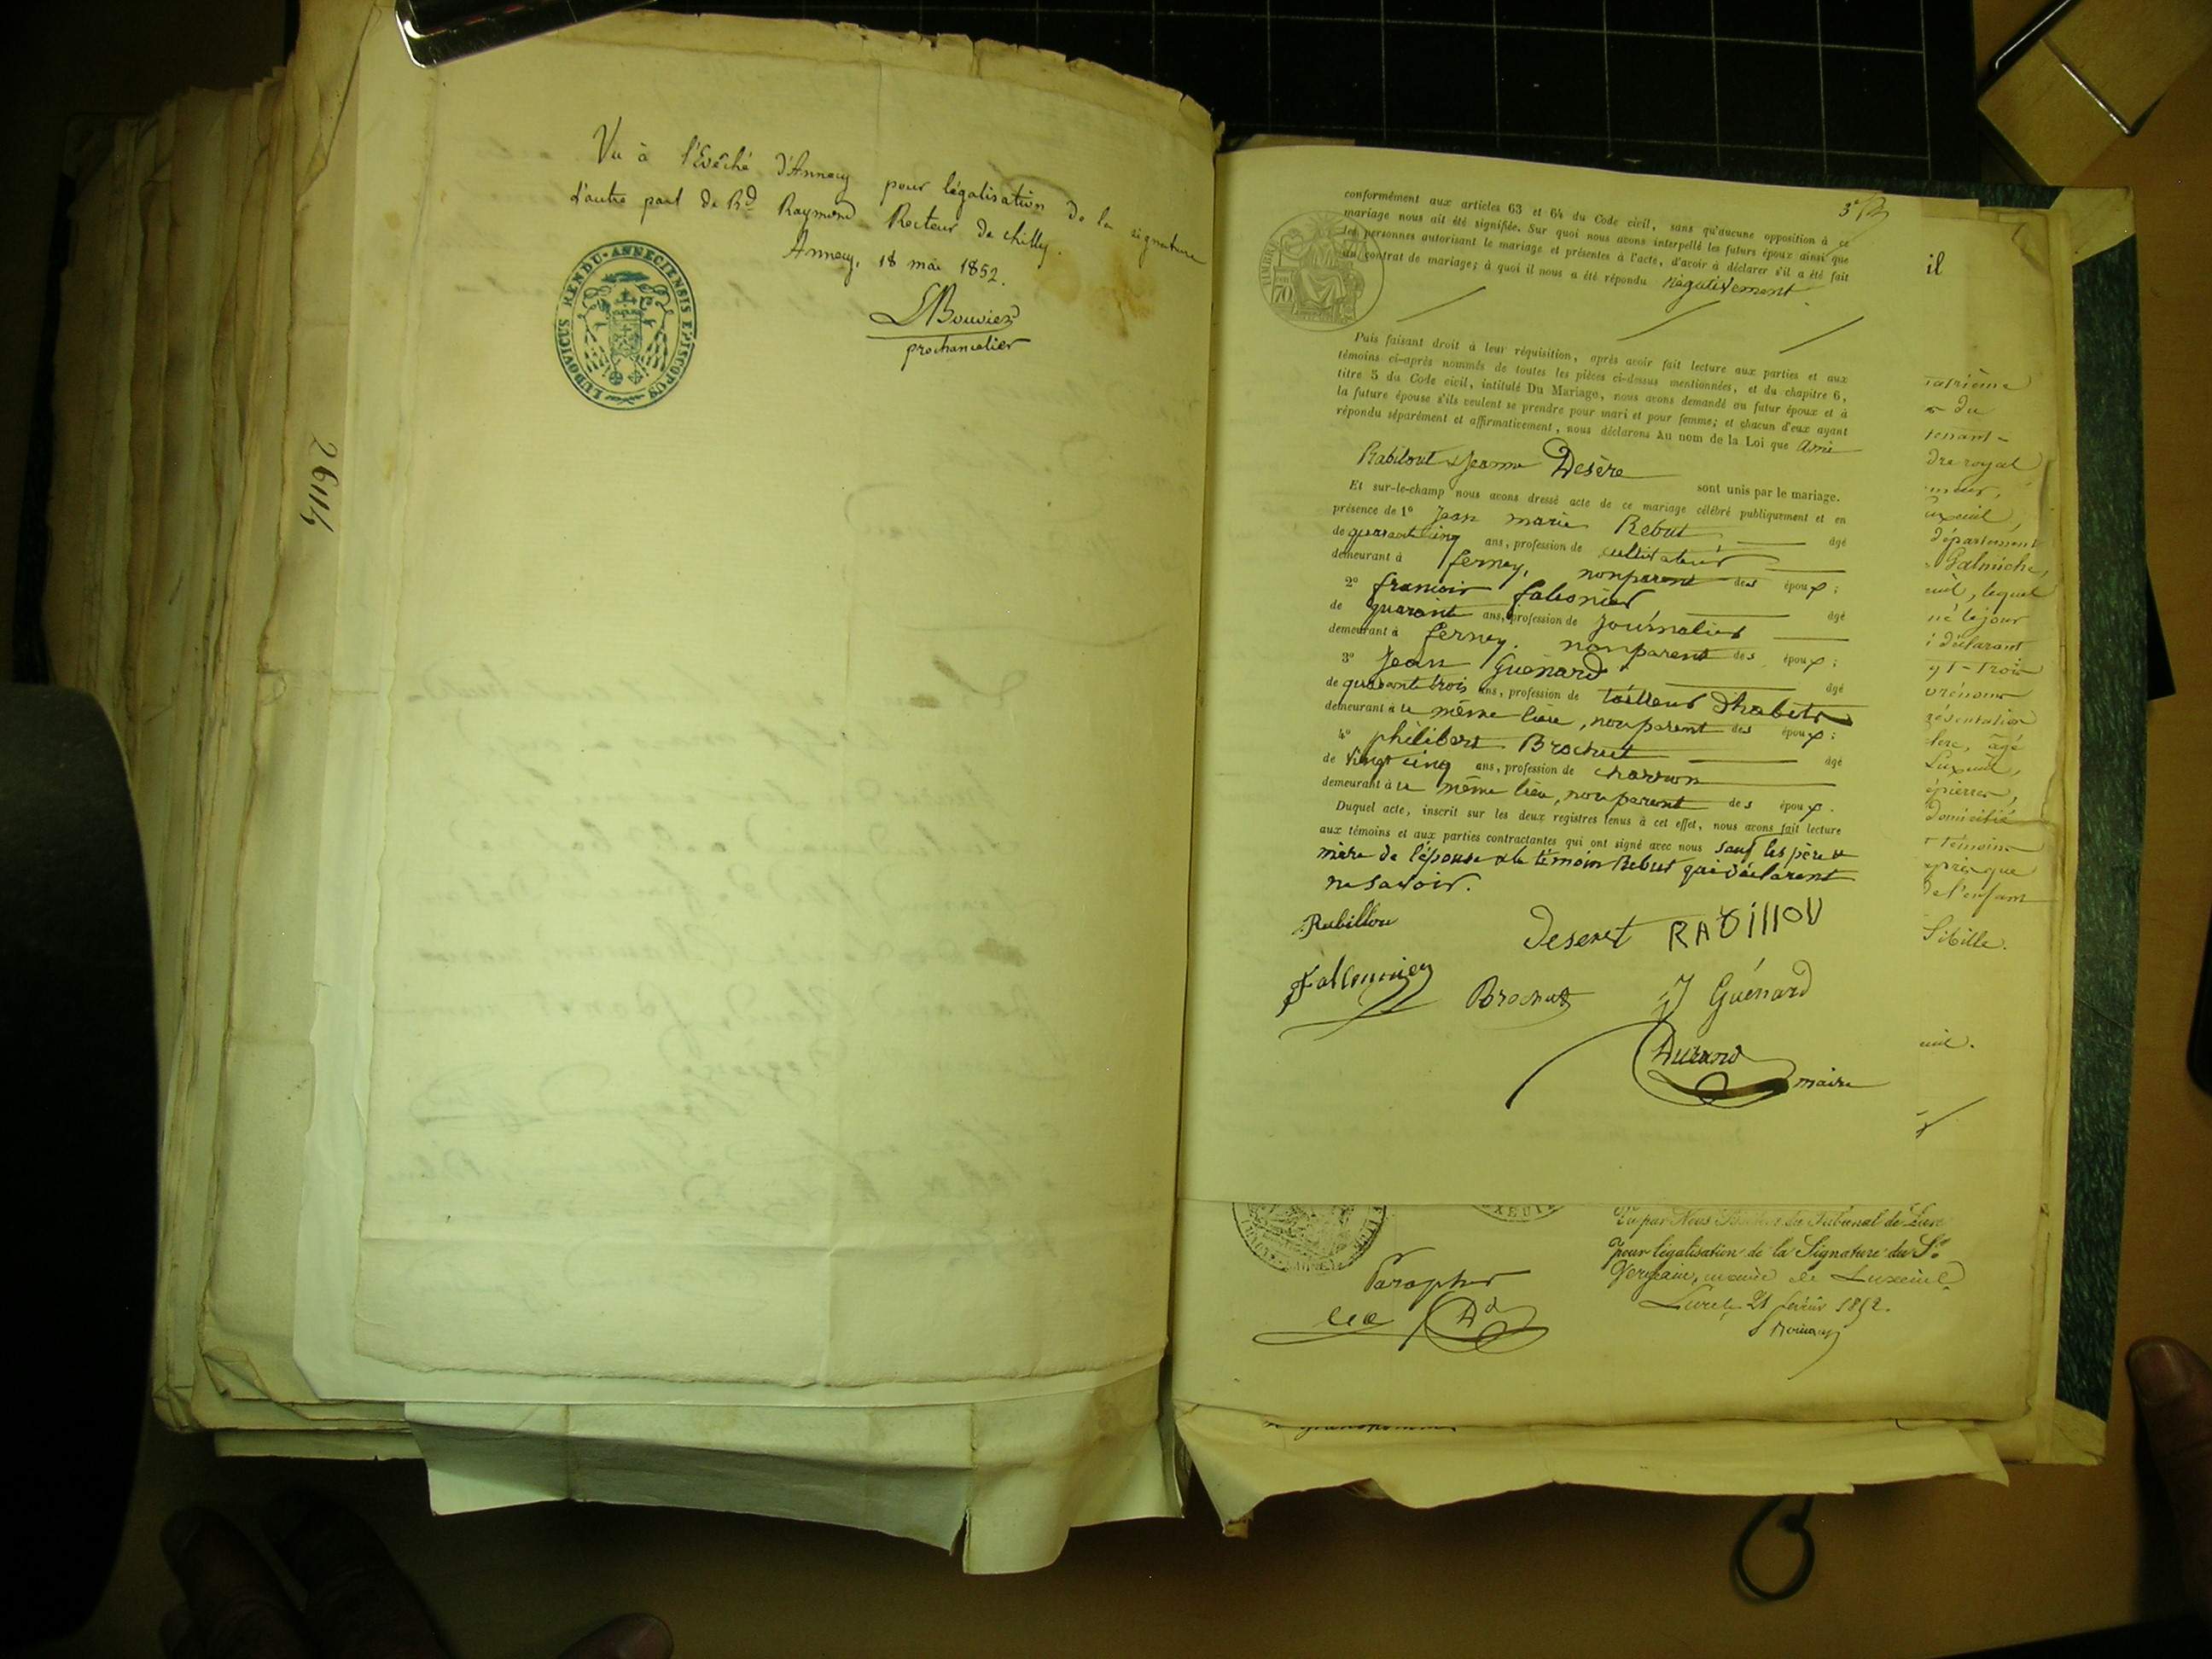 Vu à l'Evêché d'Annecy pour légalisation de la signature
d'autre part de Rd Raymond Recteur de Chilly.
Annecy, 18 mai 1852.
Bouvier
prochancelier
LUDOVICUS RENDU · ANNECIENSIS EPISCOPUS
2614
3e
conformément aux articles 63 et 64 du Code civil, sans qu'aucune opposition à ce
mariage nous ait été signifiée. Sur quoi nous avons interpellé les futurs époux ainsi que
les personnes autorisant le mariage et présentes à l'acte, d'avoir à déclarer s'il a été fait
un contrat de mariage; à quoi il nous a été répondu Négativement.
TIMBRE
70
Puis faisant droit à leur réquisition, après avoir fait lecture aux parties et aux
témoins ci-après nommés de toutes les pièces ci-dessus mentionnées, et du chapitre 6,
titre 5 du Code civil, intitulé Du Mariage, nous avons demandé au futur époux et à
la future épouse s'ils veulent se prendre pour mari et pour femme; et chacun d'eux ayant
répondu séparément et affirmativement, nous déclarons Au nom de la Loi que Amé
Rabilout & Jeanne Desère
sont unis par le mariage.
Et sur-le-champ nous avons dressé acte de ce mariage célébré publiquement et en
présence de 1° Jean marie Rebut âgé
de quarante cinq ans, profession de cultivateur
demeurant à ferney, non parent des époux;
2° francois falconier âgé
de quarante ans, profession de journalier
demeurant à ferney. non parent des époux;
3° Jean Guénard âgé
de quarante trois ans, profession de tailleur d'habits
demeurant à le même lieu, non parent des époux;
4° philibert Brochut âgé
de vingt cinq ans, profession de charron
demeurant à le même lieu, non parent des époux.
Duquel acte, inscrit sur les deux registres tenus à cet effet, nous avons fait lecture
aux témoins et aux parties contractantes qui ont signé avec nous sauf les père &
mère de l'épouse & le témoin Rebut qui déclarent
ne savoir.
Rabillou
Deseret RABillOU
Brochut
J Guénard
Durand
maire
il
du
dre royal
département
Galmiche,
lequel
né le jour
déclarant
prénoms
âgé
domicilié
Témoins
de l'enfant
Sibille.
Parapher
pour légalisation de la Signature du Sr
maire de Luxeuil
Lure le 21 février 1852.